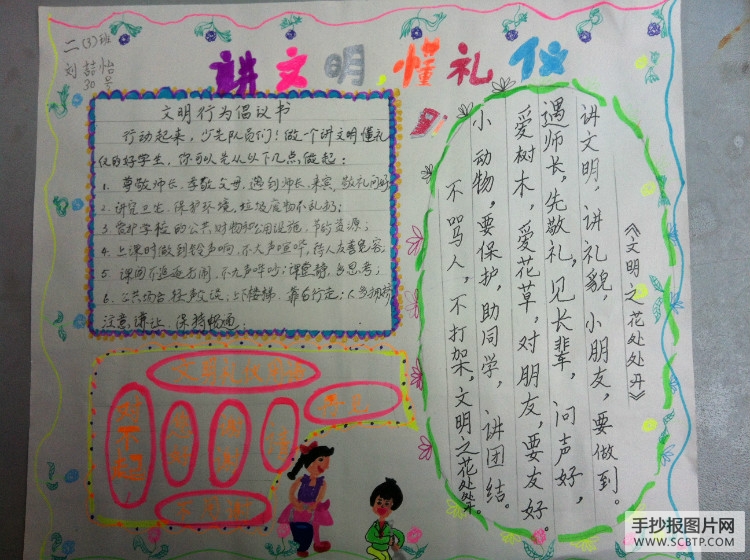 二(3)班
刘喆怡
30号
讲文明,懂礼仪
文明行为倡议书
行动起来,少先队员们!做一个讲文明懂礼
仪的好学生,你可以先从以下几点做起:
1. 尊敬师长,孝敬父母,遇到师长、来宾,敬礼问好
2. 讲究卫生,保护环境,垃圾废物不乱扔;
3. 爱护学校的公共财物和公用设施,节约资源;
4. 上课时做到铃声响,不大声喧哗,待人友善宽容;
5. 课间不追逐打闹,不大声
6. 公共场合轻声交谈;上下楼梯,靠右行走;
注意谦让,保持畅通。
《文明之花处处开》
讲文明,讲礼貌,小朋友,要做到。
遇师长,先敬礼,见长辈,问声好,
爱树木,爱花草,对朋友,要友好。
小动物,要保护,助同学,讲团结。
不骂人,不打架,文明之花处处开。
对不起
请
手抄报图片网
WWW.SCBTP.COM